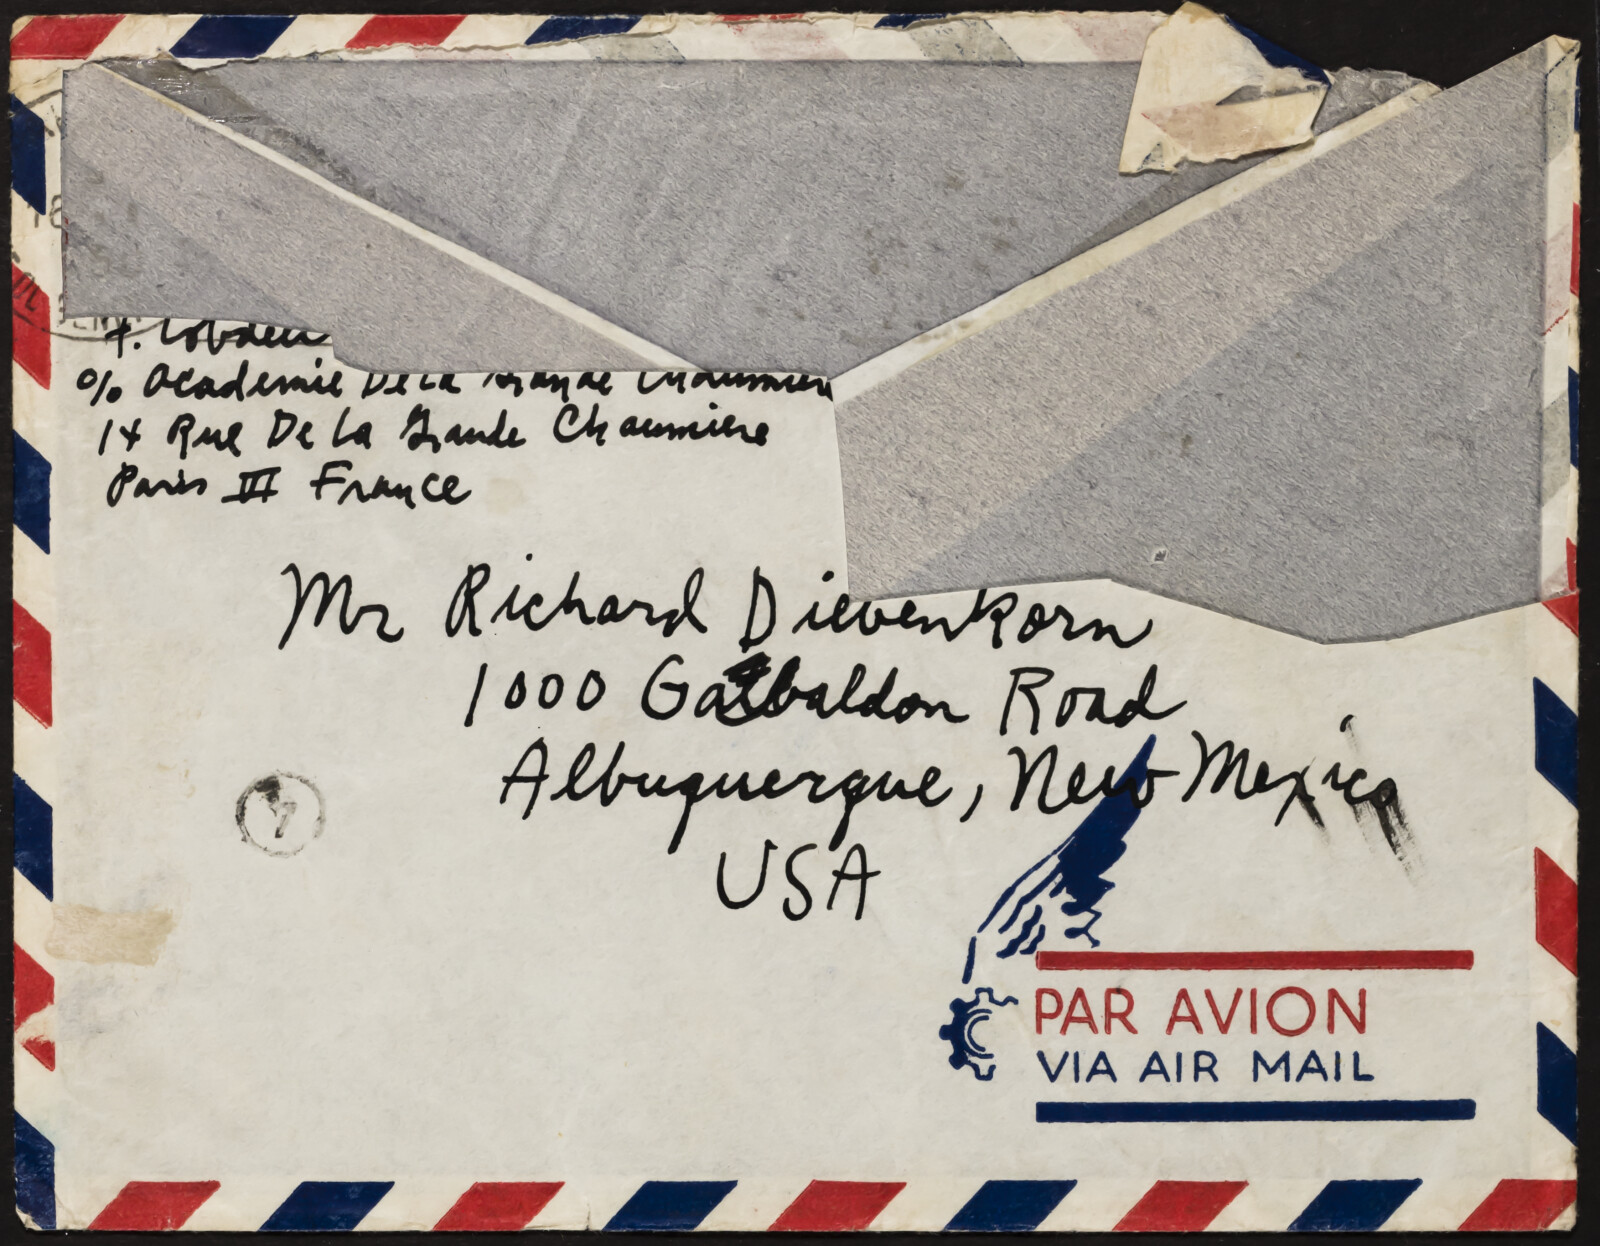 F. Lobdell
% Academie De La Grande Chaumiere
14 Rue De La Grande Chaumiere
Paris VI France
Mr Richard Dievenkorn
1000 Gabaldon Road
Albuquerque, New Mexico
USA
4
PAR AVION
VIA AIR MAIL